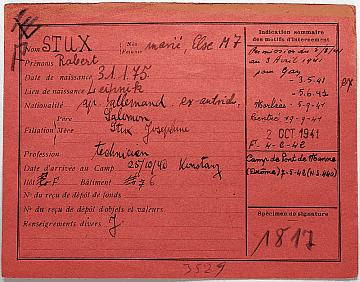 Nom STUX
Née
Prénoms Robert marié, Else M7
Date de naissance 3.1.75.
Lieu de naissance Leipnik
Nationalité ap. allemand, ex-autrich.
Filiation Père Salomon
Mère Stux Josephine
Profession technicien
Date d'arrivée au Camp 25/10/40 Konstanz
Ilôt F Bâtiment 6
N° du reçu de dépôt de fonds
N° du reçu de dépôt d'objets et valeurs
Renseignements divers J
Indication sommaire
des motifs d'internement
Permission du
au 3 Avril 1941
pour Gay
3.5.41
5.6.41
5-9-41
Rentré 19-9-41
2 OCT 1941
F. 4-2-42
Camp de
(Drôme) 7-5-42
Spécimen de signature
1817
3529